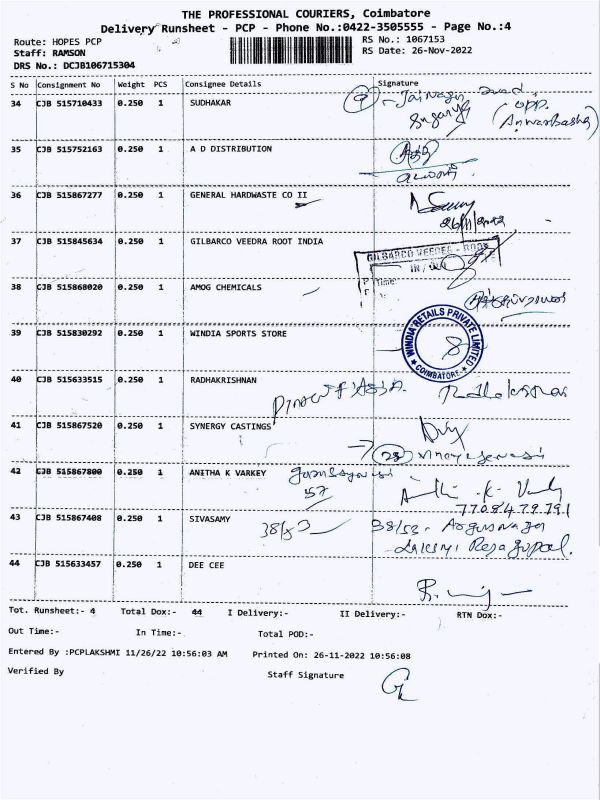 THE PROFESSIONAL COURIERS, Coimbatore
Delivery Runsheet - PCP - Phone No.:0422-3505555 - Page No.:4
Route: HOPES PCP
RS No.: 1067153
Staff: RAMSON
RS Date: 26-Nov-2022
DRS No.: DCJB106715304
S No Consignment No Weight PCS Consignee Details Signature
34 CJB 515710433 0.250 1 SUDHAKAR
opp.
35 CJB 515752163 0.250 1 A D DISTRIBUTION
36 CJB 515867277 0.250 1 GENERAL HARDWASTE CO II
26/11/2022
37 CJB 515845634 0.250 1 GILBARCO VEEDRA ROOT INDIA
GILBARCO VEEDER - ROOT
IN / OUT
Time:
38 CJB 515868020 0.250 1 AMOG CHEMICALS
39 CJB 515830292 0.250 1 WINDIA SPORTS STORE
WINDIA RETAILS PRIVATE LIMITED
* COIMBATORE *
40 CJB 515633515 0.250 1 RADHAKRISHNAN
41 CJB 515867520 0.250 1 SYNERGY CASTINGS
42 CJB 515867800 0.250 1 ANITHA K VARKEY
57
43 CJB 515867408 0.250 1 SIVASAMY
38/53
38/53 -
44 CJB 515633457 0.250 1 DEE CEE
Tot. Runsheet:- 4 Total Dox:- 44 I Delivery:- II Delivery:- RTN Dox:-
Out Time:- In Time:- Total POD:-
Entered By :PCPLAKSHMI 11/26/22 10:56:03 AM Printed On: 26-11-2022 10:56:08
Verified By Staff Signature